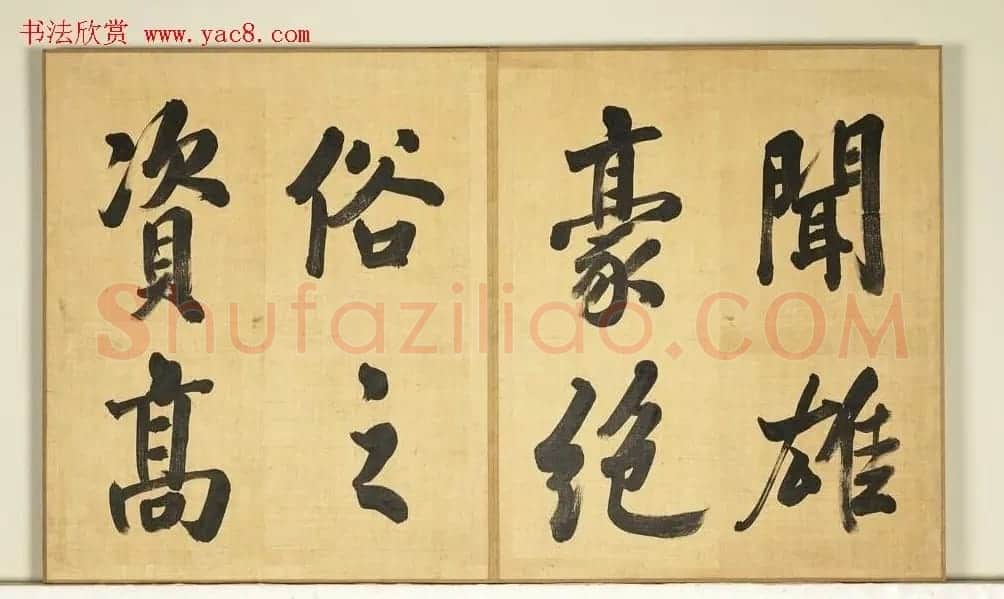 书法欣赏 www.yac8.com
聞雄
豪絕
俗之
資高
Shufaziliao.COM